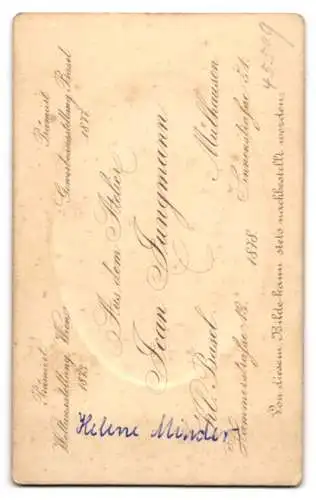 Prämiirt
Weltausstellung Wien
1873.
Prämiirt
Gewerbeausstellung Basel
1877.
Aus dem Atelier
Jean Jungmann
Kl. Basel
Hammerstrasse 12.
Mülhausen
Sinnenstrasse 51.
1878.
Von diesem Bilde kann stets nachbestellt werden.
45509
Helene Minder